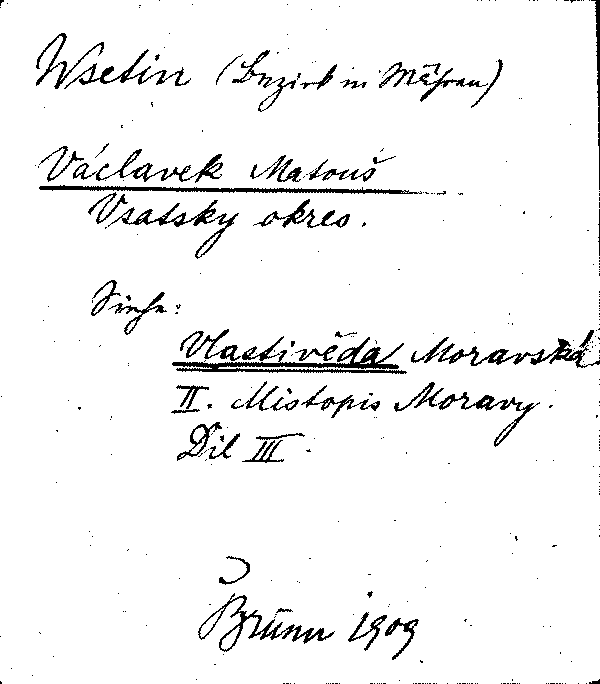 Wsetin (Bezirk in Mähren)
Václavek Matouš
Vsatsky okres.
Siehe:
Vlastivěda Moravská
II. Mistopis Moravy.
Dil III.
Brünn 1909